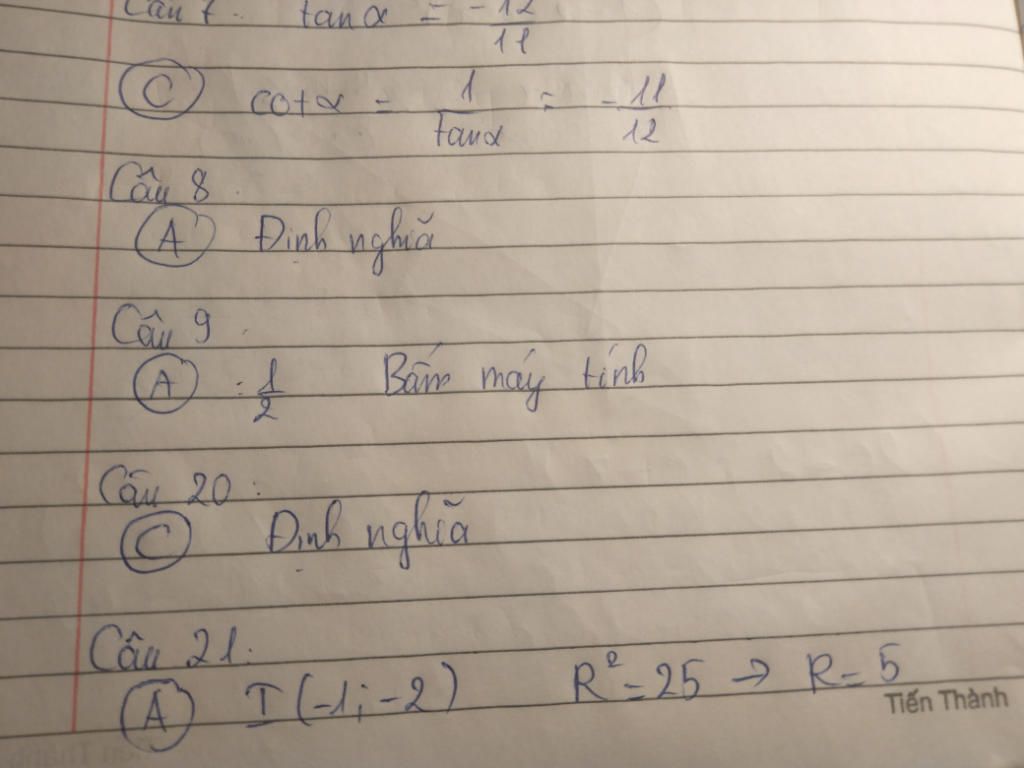 Câu 7. tanα = -12/11
(C) cotα = 1/tanα = -11/12
Câu 8.
(A) Định nghĩa
Câu 9.
(A) : 1/2 Bấm máy tính
Câu 20.
(C) Định nghĩa
Câu 21.
(A) I(-1; -2) R² = 25 → R = 5
Tiến Thành